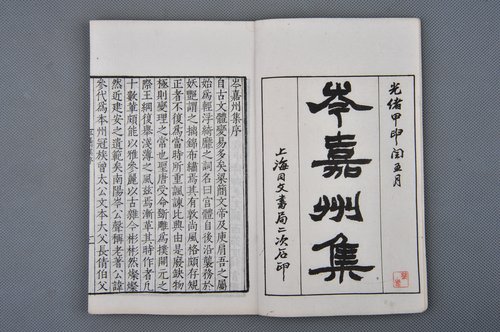 光緒甲申閏五月
岑嘉州集
上海同文書局二次石印
岑嘉州集序
自古文體變易多矣梁簡文帝及庾肩吾之屬
始為輕浮綺靡之詞名曰宮體自後沿襲務於
妖艷謂之摛錦布繡焉其有敦尚風格頗存規
正者不復為當時所重諷諫比興由是廢缺物
極則變理之常也聖唐受命斲雕為樸開元之
際王綱復舉淺薄之風茲焉漸革其時作者凡
十數輩頗能以雅參麗以古雜今彬彬然燦燦
然近建安之遺範矣南陽岑公聲稱尤著公諱
參代為本州冠族曾太公文本大父長倩伯父